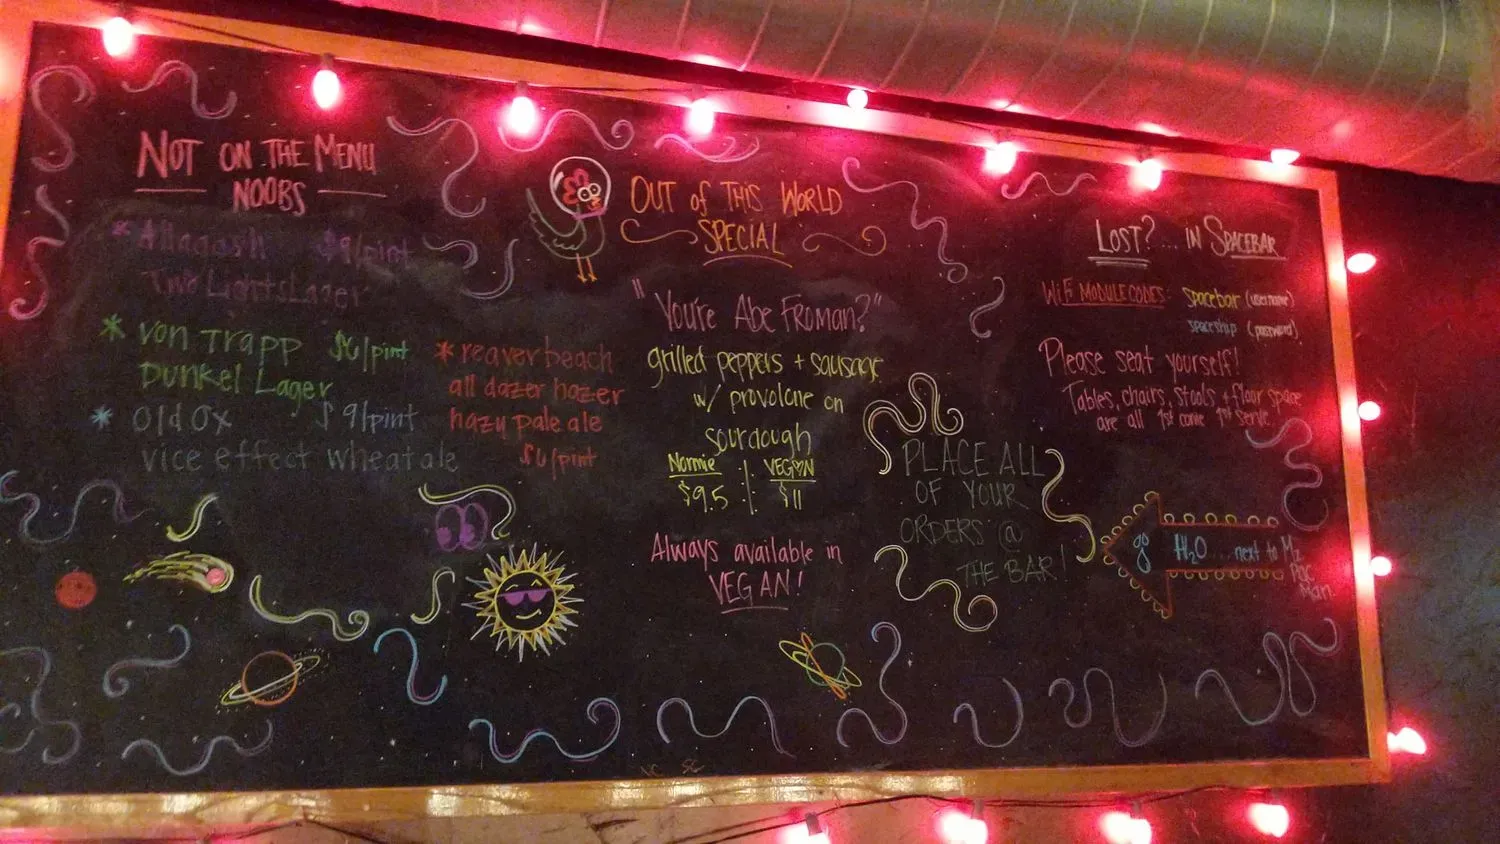 NOT ON THE MENU
NOOBS
* Allagash $9/pint
Two Lights Lager
* von Trapp $6/pint
Dunkel Lager
* Old Ox $9/pint
vice effect wheat ale
* reaver beach
all dazer hazer
hazy pale ale
$6/pint
OUT OF THIS WORLD
SPECIAL
"You're Abe Froman?"
grilled peppers + sausage
w/ provolone on
sourdough
Normie VEGAN
$9.5 $11
Always available in
VEGAN!
PLACE ALL
OF YOUR
ORDERS @
THE BAR!
LOST? ... IN SPACEBAR
WiFi MODULE CODES: Spacebar (username)
spaceship (password)
Please seat yourself!
Tables, chairs, stools + floor space
are all 1st come 1st serve.
go H2O ... next to Mz
Pac
Man.